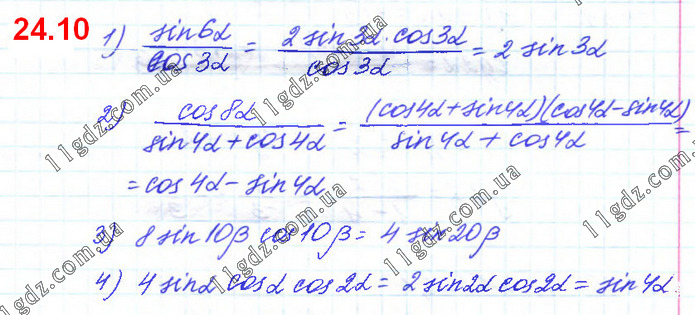 24.10 1) sin6α/cos3α = 2 sin3α · cos3α/cos3α = 2 sin3α
2) cos8α/sin4α + cos4α = (cos4α + sin4α)(cos4α - sin4α)/sin4α + cos4α =
= cos4α - sin4α
3) 8 sin10β cos10β = 4 sin20β
4) 4 sinα cosα cos2α = 2 sin2α cos2α = sin4α.
11gdz.com.ua
11gdz.com.ua
11gdz.com.ua
11gdz.com.ua
11gdz.com.ua